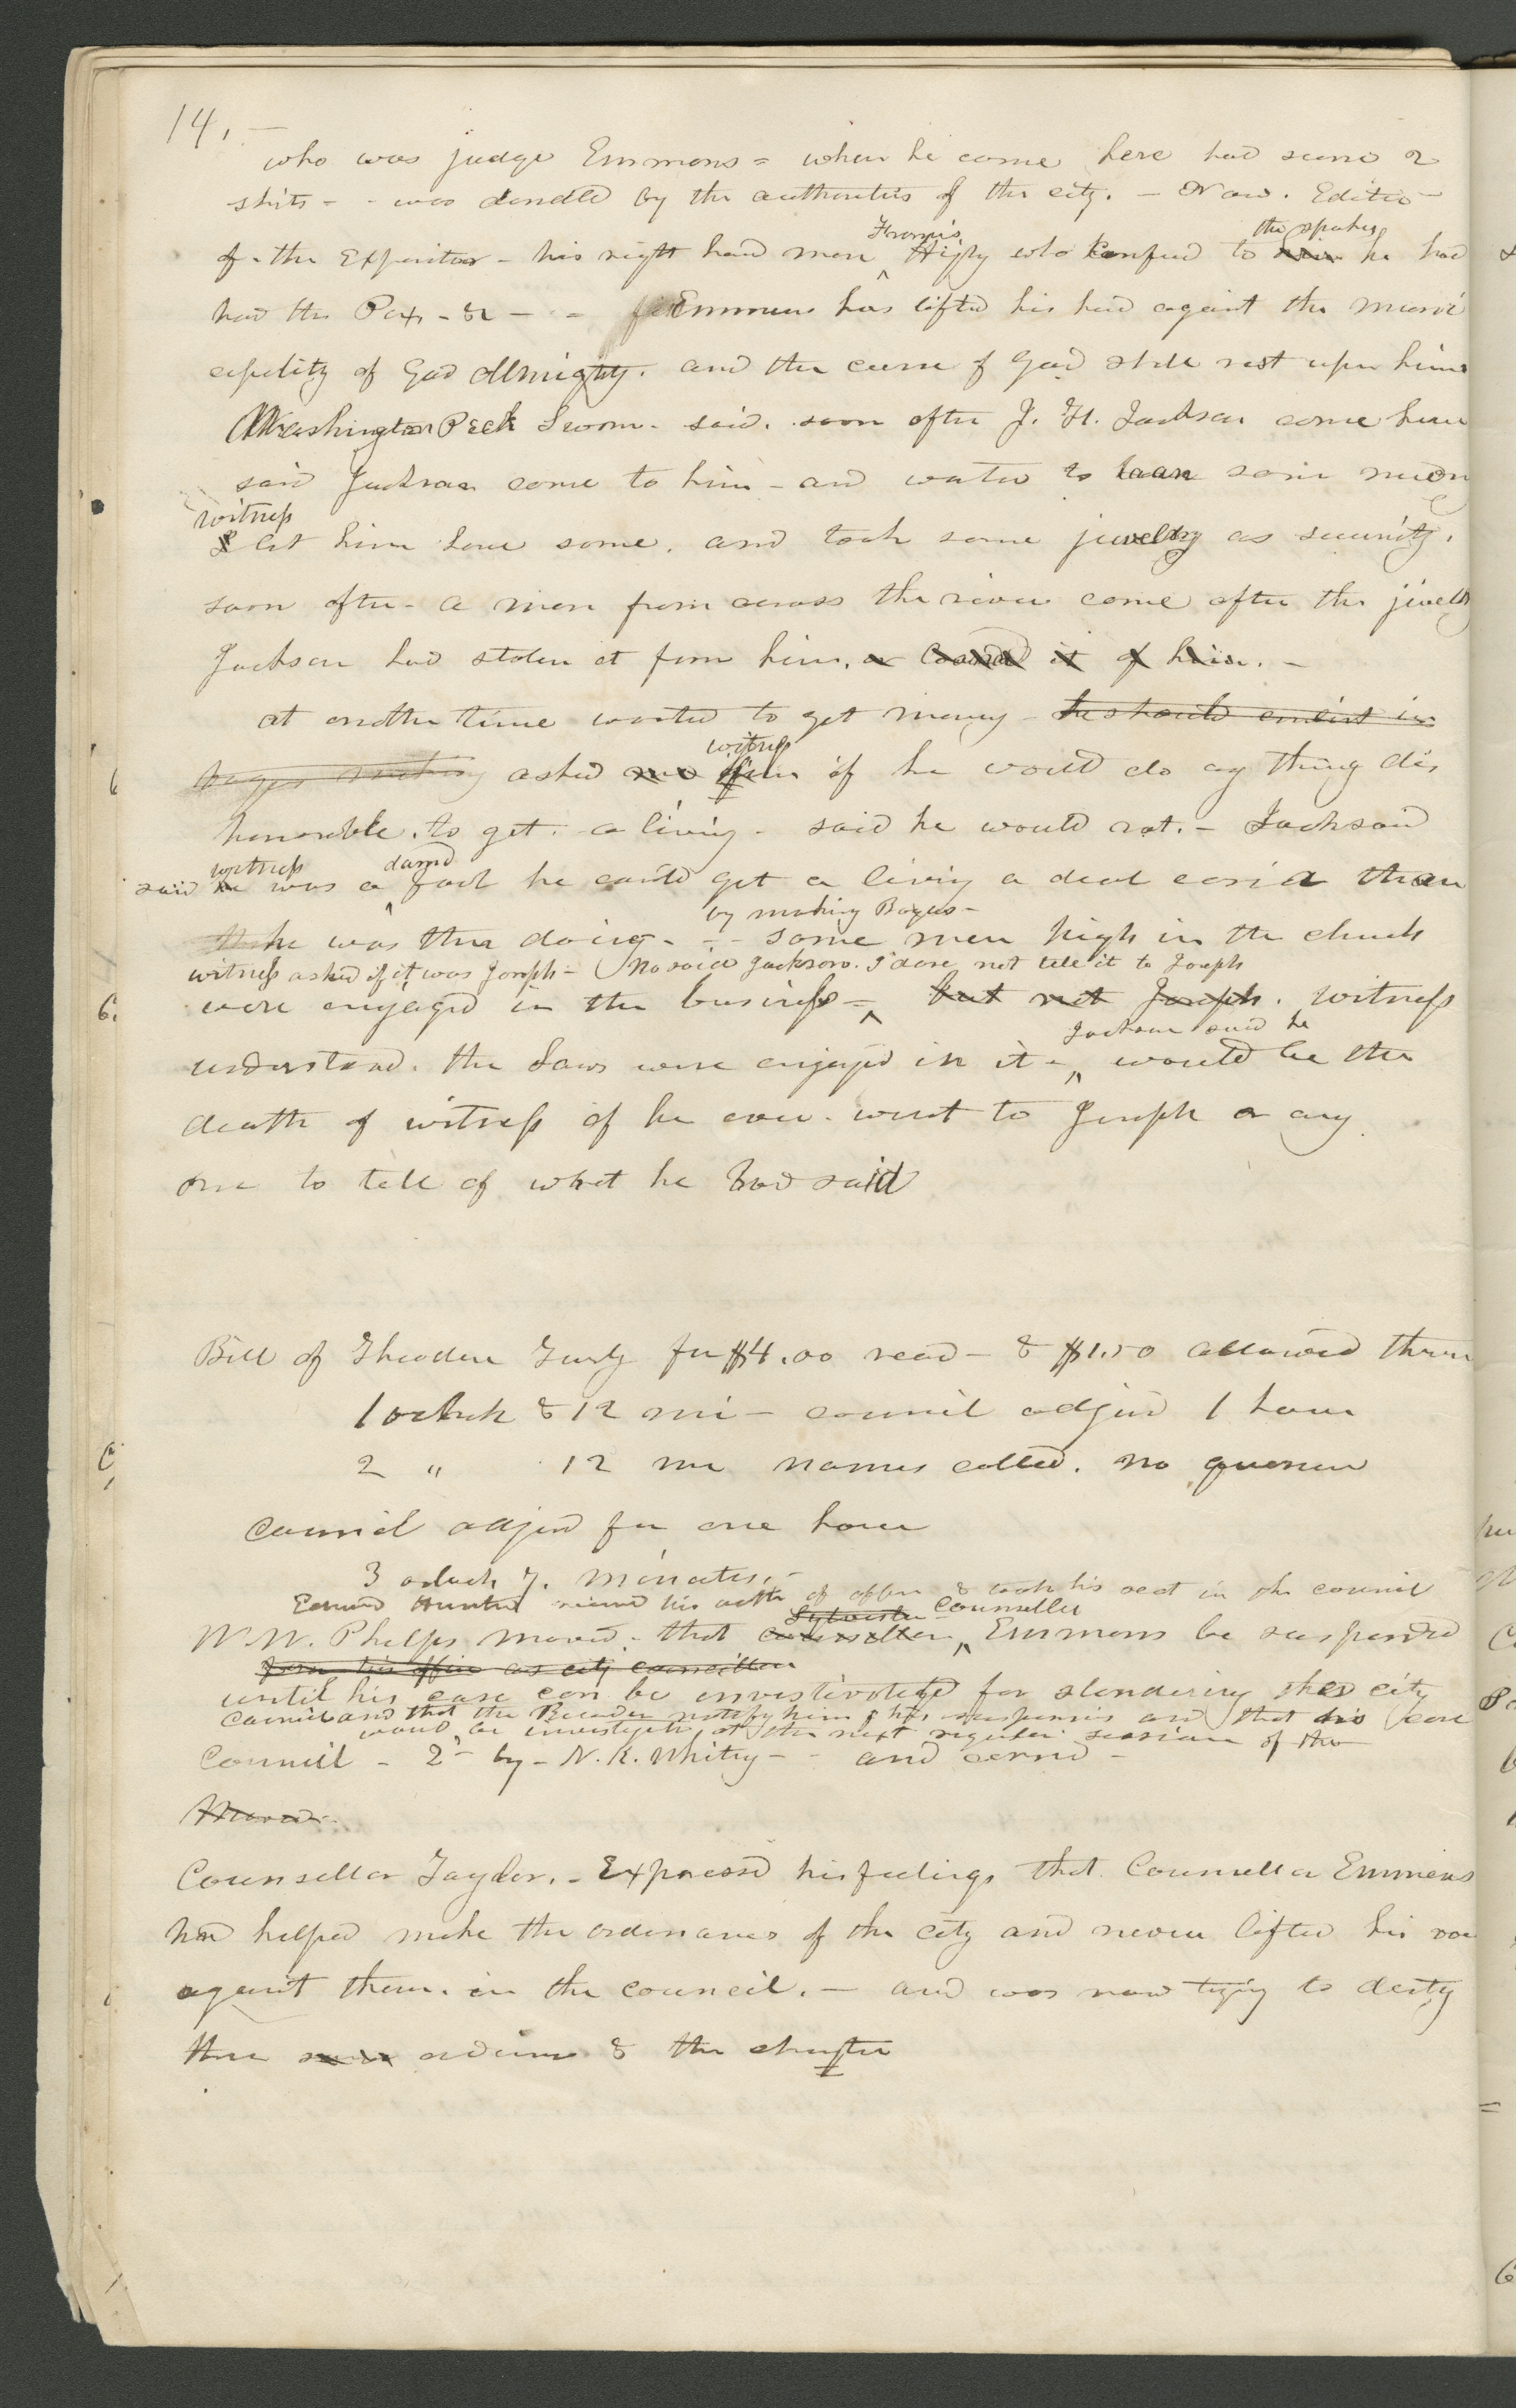 14.
who was judge Emmons = when he come here had scarce 2
shits - - was dandld by the authorities of the city. - Now. Editor
of - the Expositor - his right hand man Francis Higby who confesd to the speaker he had
had the Pox - &c - - Emmons has lifted his hand against the munici
cipality of God Almighty. and the curse of God shall rest upon him
Washington Peck Sworn - said. soon after J. H. Jackson come here
said Jackson come to him - and wanted to loan some money
witness
let him have some. and took some jewelry as security.
soon after - a man from across the river come after the jewelry
Jackson had stolen it from him. or loaned it of him. -
at another time wanted to get money - he should enlist in
bogus making asked witness if he would do any thing dis
honorable. to get. a living - said he would not. - Jackson
said witness was a damd fool he could get a living a deal easier than
he was then doing - by making Bogus - - some men high in the church
witness asked if it was Joseph - No said Jackson. I dare not tell it to Joseph
were engaged in the business - but not Joseph. witness
understood. the Laws were engaged in it - Jackson said he would be the
death of witness if he ever went to Joseph or any
one to tell of what he had said
Bill of Theodore Turly for $4.00 read - & $1.50 allowed
1 oclock & 12 mi - council adjd 1 hour
2 " 12 mi names called. no quorum
Council adjd for one hour
3 oclock 7. minutes. -
Edward Hunter recievd his oath of office & took his seat in the council
Sylvester Counsellor
W. W. Phelps moved. that counsellor Emmons be suspended
from his office as city councillor
until his case can be investivgated for slandering the city
Council and that the Recorder notify him of his suspension and that his case
would be investigated at the next regular session of the
Council - 2d by - N. K. Whitny - - and carrid -
Moved
Counsellor Taylor. - Expressd his feelings that Counsellor Emmons
had helped make the ordinances of the city and never lifted his voice
against them. in the council. - and was now trying to destroy
these ordinances & the charter